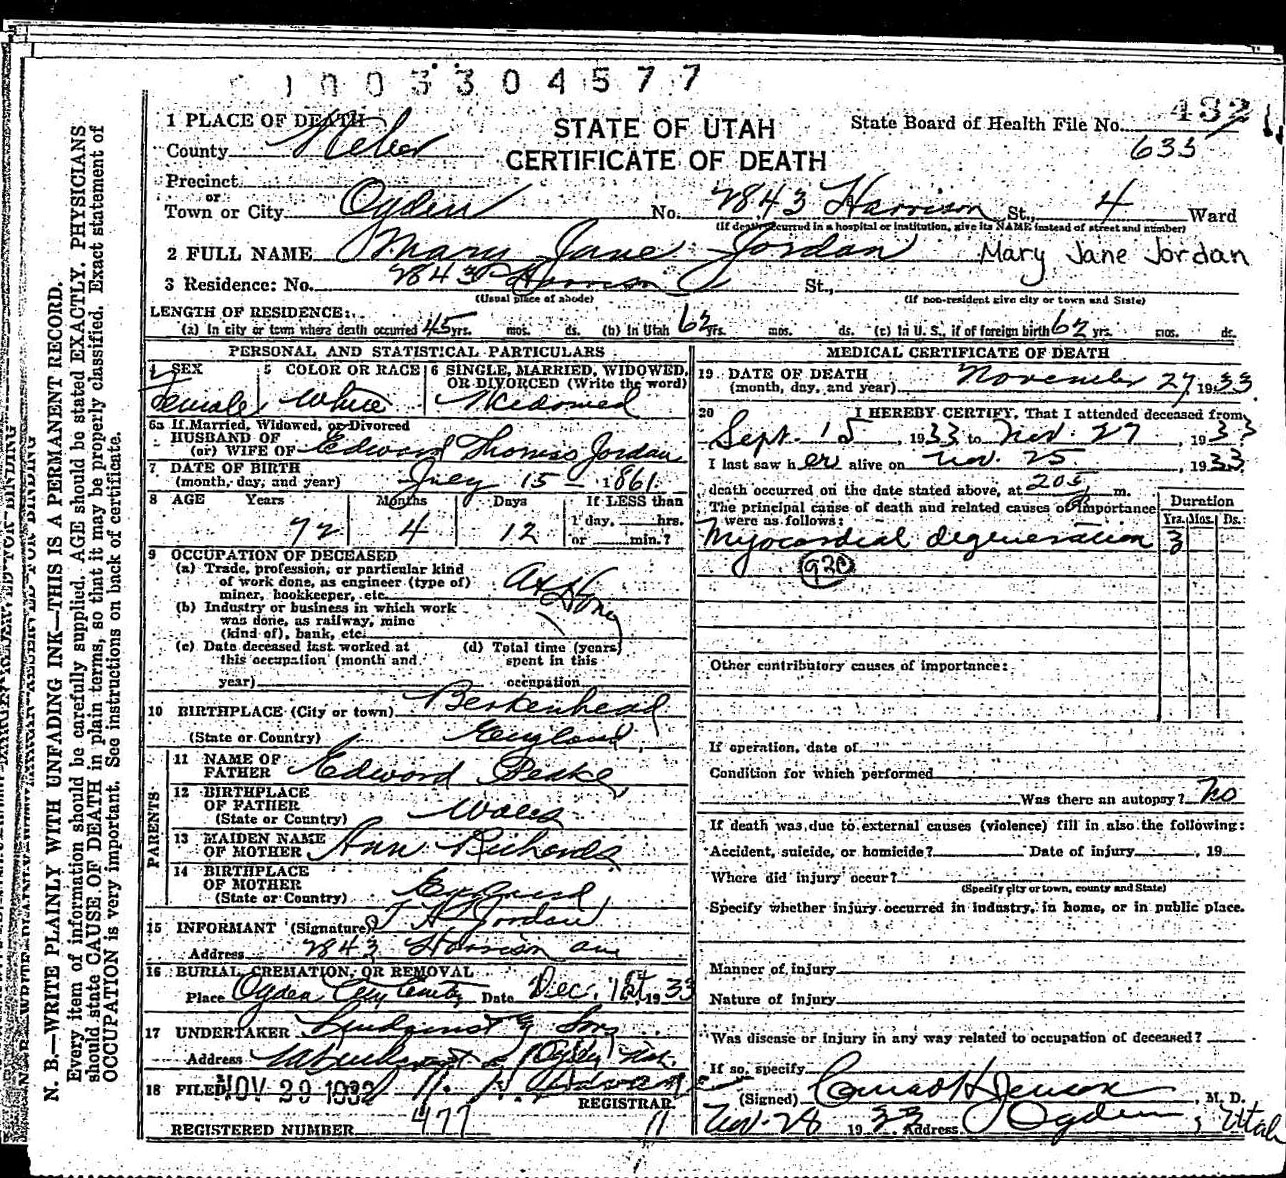 1003304577
432
1 PLACE OF DEATH
STATE OF UTAH
State Board of Health File No.
County Weber
CERTIFICATE OF DEATH
633
Precinct
or
Town or City Ogden No. 2843 Harrison St., 4 Ward
(If death occurred in a hospital or institution, give its NAME instead of street and number)
2 FULL NAME Mary Jane Jordan Mary Jane Jordan
3 Residence: No. 2843 Harrison St.,
(Usual place of abode) (If non-resident give city or town and State)
LENGTH OF RESIDENCE:
(a) In city or town where death occurred 45 yrs. mos. ds. (b) In Utah 62 yrs. mos. ds. (c) In U. S., if of foreign birth 62 yrs. mos. ds.
PERSONAL AND STATISTICAL PARTICULARS
4 SEX 5 COLOR OR RACE 6 SINGLE, MARRIED, WIDOWED,
OR DIVORCED (Write the word)
Female White Widowed
6a If Married, Widowed, or Divorced
HUSBAND OF
(or) WIFE OF Edward Thomas Jordan
7 DATE OF BIRTH
(month, day, and year) July 15 1861
8 AGE Years Months Days If LESS than
72 4 12 1 day, hrs.
or min.?
9 OCCUPATION OF DECEASED
(a) Trade, profession, or particular kind
of work done, as engineer (type of)
miner, bookkeeper, etc. At Home
(b) Industry or business in which work
was done, as railway, mine
(kind of), bank, etc.
(c) Date deceased last worked at (d) Total time (years)
this occupation (month and spent in this
year) occupation
10 BIRTHPLACE (City or town) Berkenhead
(State or Country) England
PARENTS
11 NAME OF
FATHER Edward Peake
12 BIRTHPLACE
OF FATHER
(State or Country) Wales
13 MAIDEN NAME
OF MOTHER Ann Richards
14 BIRTHPLACE
OF MOTHER
(State or Country) England
15 INFORMANT (Signature) Jordan
Address 2843 Harrison ave
16 BURIAL, CREMATION, OR REMOVAL
Place Ogden City Date Dec. 1st 1933
17 UNDERTAKER Lindquist & Sons
Address Ogden
18 FILED NOV 29 1933
REGISTRAR
REGISTERED NUMBER 477 11
MEDICAL CERTIFICATE OF DEATH
19 DATE OF DEATH
(month, day, and year) November 27, 1933
20 I HEREBY CERTIFY, That I attended deceased from
Sept. 15, 1933 to Nov. 27, 1933
I last saw her alive on Nov. 25, 1933
death occurred on the date stated above, at 205 m.
The principal cause of death and related causes of importance
were as follows:
Duration
Yrs. Mos. Ds.
Myocardial degeneration 3
930
Other contributory causes of importance:
If operation, date of
Condition for which performed
Was there an autopsy? No
If death was due to external causes (violence) fill in also the following:
Accident, suicide, or homicide? Date of injury , 19
Where did injury occur?
(Specify city or town, county and State)
Specify whether injury occurred in industry, in home, or in public place.
Manner of injury
Nature of injury
Was disease or injury in any way related to occupation of deceased?
If so, specify
(Signed) Conrad H Jenson, M. D.
Nov. 28 1933 Address Ogden, Utah
N. B.—WRITE PLAINLY WITH UNFADING INK—THIS IS A PERMANENT RECORD.
Every item of information should be carefully supplied. AGE should be stated EXACTLY. PHYSICIANS
should state CAUSE OF DEATH in plain terms, so that it may be properly classified. Exact statement of
OCCUPATION is very important. See instructions on back of certificate.